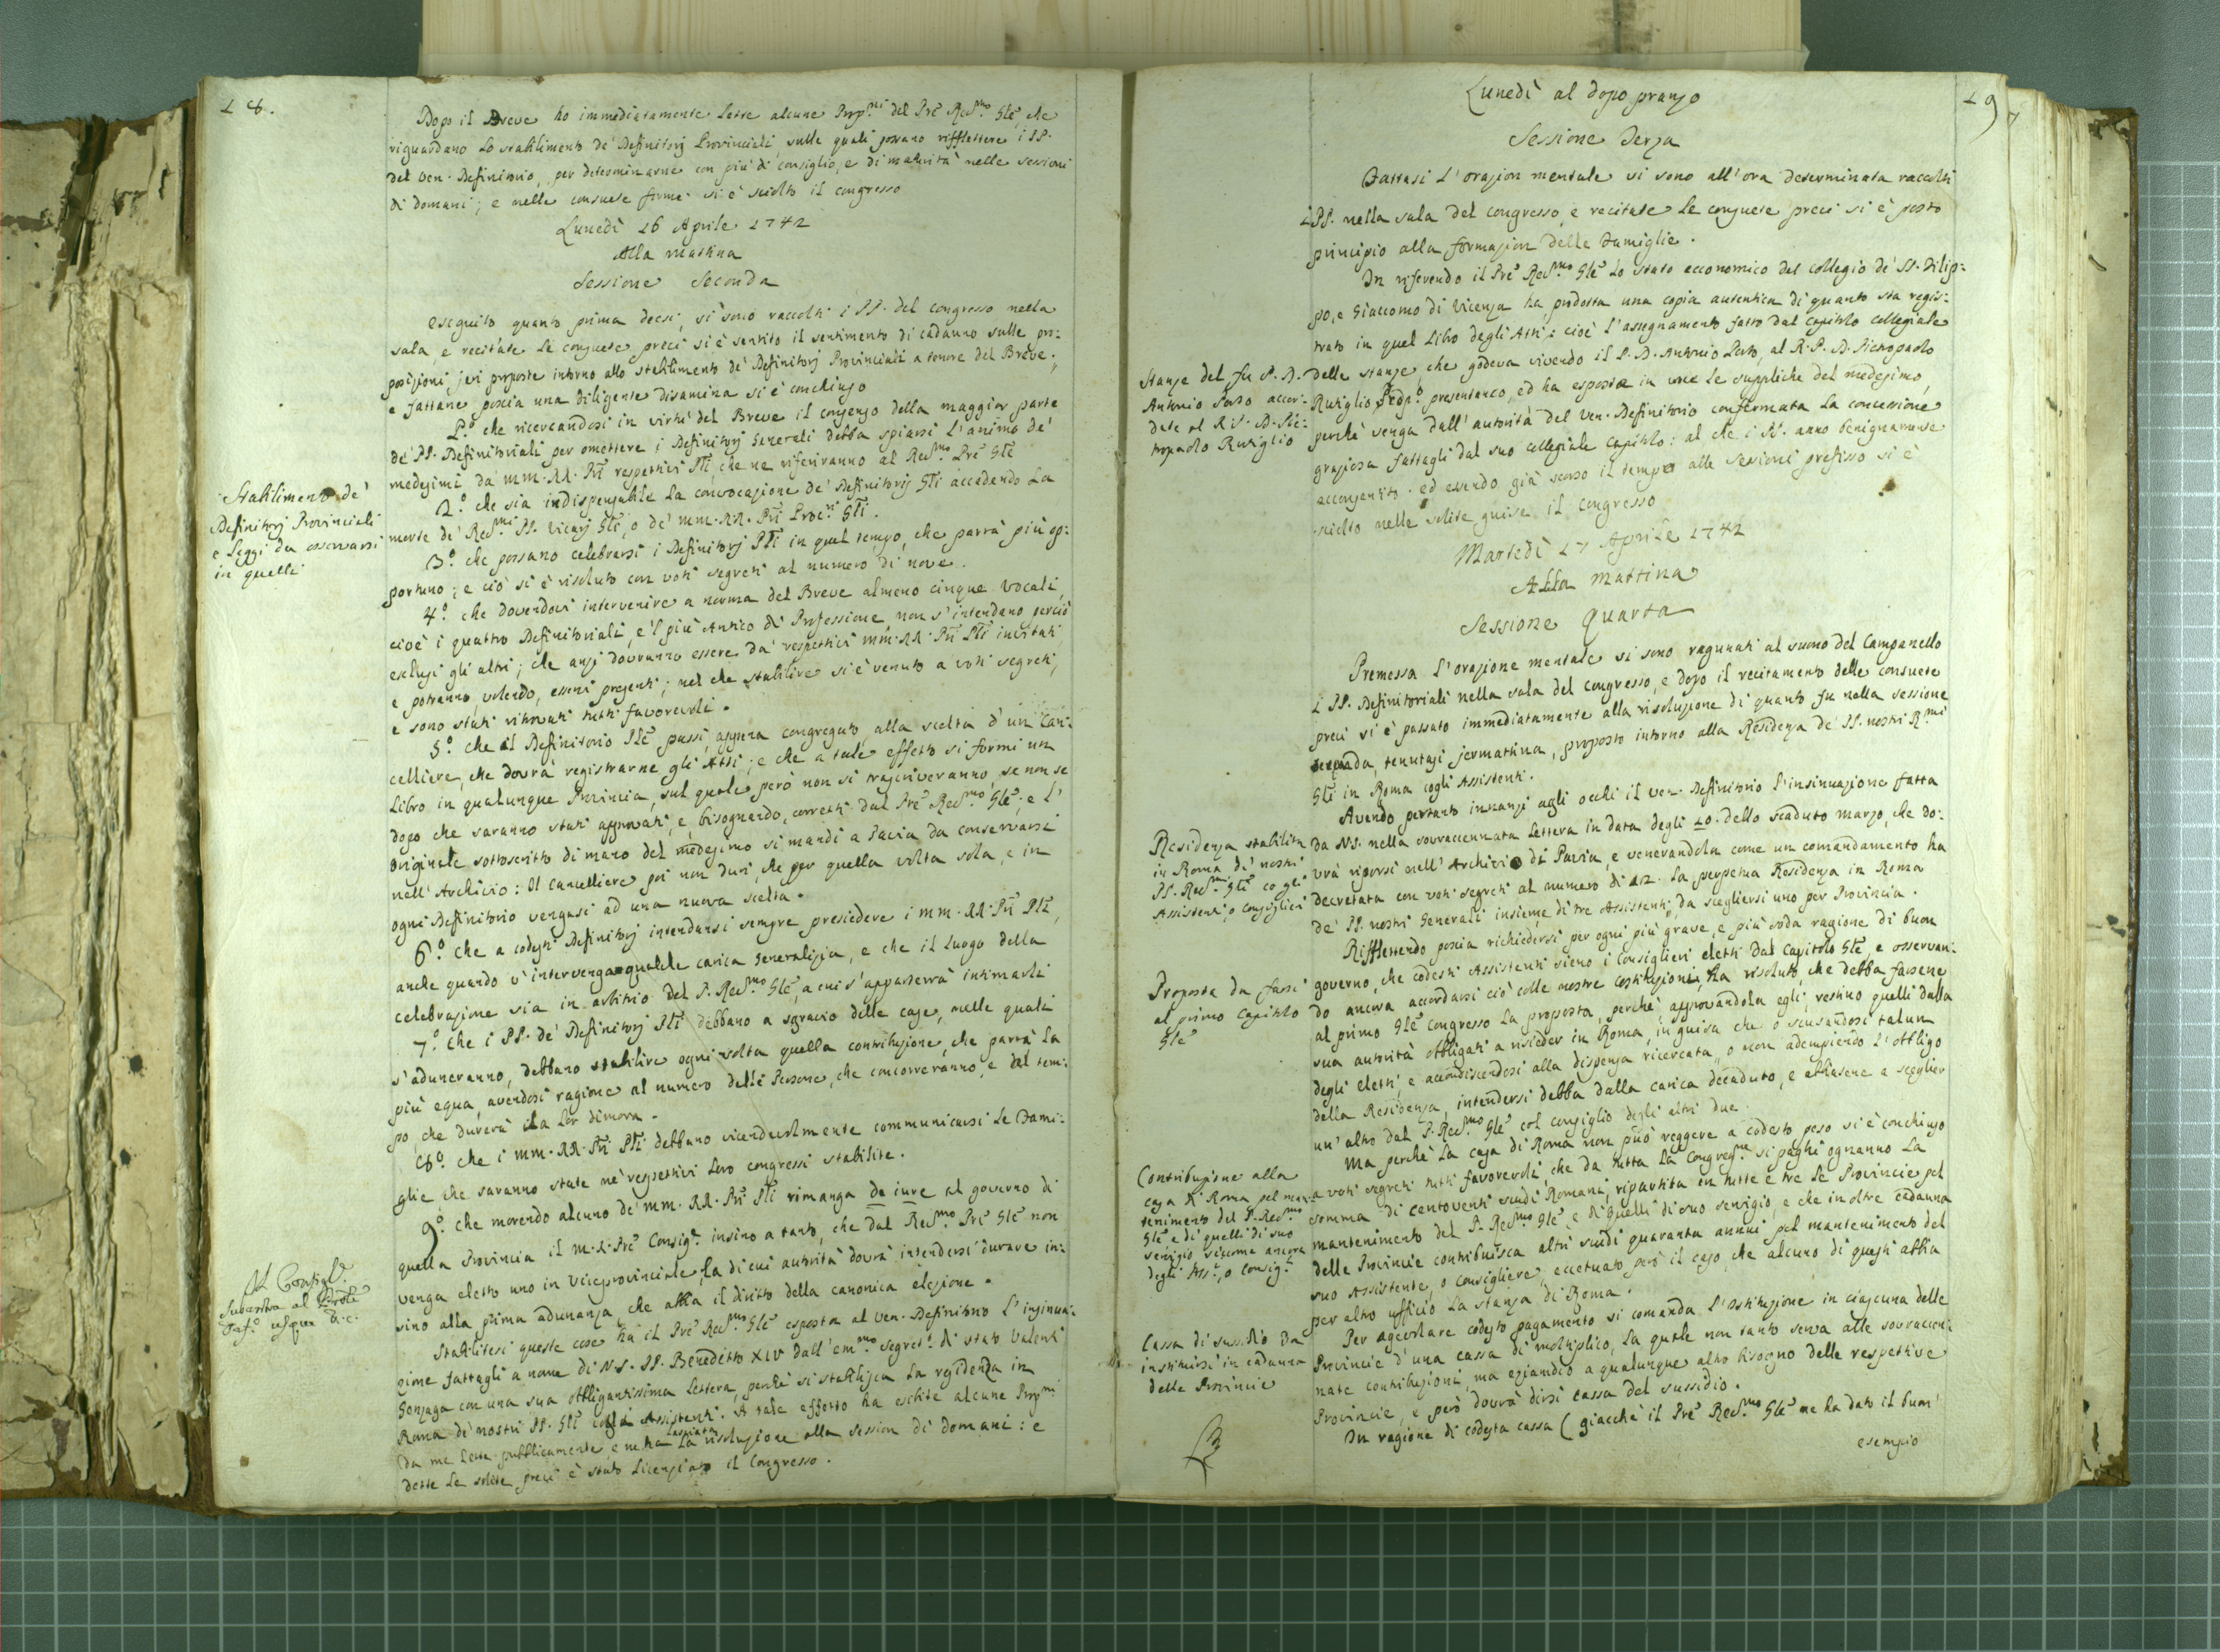 18.
Dopo il Breve ho immediatamente lette alcune Propni del Pre Revmo Gle, che
riguardano lo stabilimento de' Definitorj Provinciali, sulle quali possano rifflettere i PP.
del Ven. Definitorio, per determinarne con più di consiglio, e di maturità nelle sessioni
di domani; e nelle consuete forme si è sciolto il congresso
Lunedì 16 Aprile 1742
Alla mattina
Sessione Seconda
Eseguito quanto prima decsi, si sono raccolti i PP. del congresso nella
sala e recitate le consuete preci si è sentito il sentimento di cadauno sulle pro:
posizioni jeri proposte intorno allo stabilimento de' Definitorj Provinciali a tenore del Breve;
e fattane poscia una diligente disamina si è conchiuso
1.° che ricercandosi in virtù del Breve il consenso della maggior parte
de' PP. Definitoriali per omettere i Definitorj Generali debba spiarsi l'animo de'
medesimi da' MM. RR. Pri respettivi Pli che ne riferiranno al Revmo Pre Gle
2.° che sia indispensabile la convocazione de' Definitorij Gli accadendo la
morte de' Revmi PP. Vicarj Gli, o de' MM. RR. Pri Procri Gli.
3.° che possano celebrarsi i Definitorj Pli in quel tempo, che parrà più op:
portuno; e ciò si è risoluto con voti segreti al numero di nove.
4.° che dovendosi intervenire a norma del Breve almeno cinque vocali,
cioè i quattro Definitoriali, e 'l più Antico di Professione, non s'intendano perciò
esclusi gli altri; che anzi dovranno essere da' respettivi MM. RR. Pri Pli invitati,
e potranno, volendo, esservi presenti; nel che stabilire si è venuto a' voti segreti,
e sono stati ritrovati tutti favorevoli.
5.° che il Definitorio Ple passi, appena congregato, alla scelta d'un Can:
celliere, che dovrà registrarne gli Atti; e che a tale effetto si formi un
Libro in qualunque Provincia, sul quale però non si trascriveranno, se non se
dopo che saranno stati approvati, e, bisognando, corretti dal Pre Revmo Gle; e l'
originale sottoscritto di mano del medesimo si mandi a Pavia da conservarsi
nell'Archivio: Il Cancelliere poi non duri, che per quella volta sola, e in
ogni Definitorio vengasi ad una nuova scelta.
6.° che a codesti Definitorj intendansi sempre presiedere i MM. RR. Pri Pli,
anche quando v'intervenga qualche carica Generalizia, e che il luogo della
celebrazione sia in arbitrio del P. Revmo Gle, a cui s'apparterrà intimarli
7.° che i PP. de' Definitorj Pli debbano a sgravio delle case, nelle quali
s'aduneranno, debbano stabilire ogni volta quella contribuzione, che parrà la
più equa, avendosi ragione al numero delle Persone, che concorreranno, e del tem:
po, che durerà la lor dimora.
8.° che i MM. RR. Pri Pli debbano vicendevolmente communicarsi le Fami:
glie, che saranno state ne' respettivi loro congressi stabilite.
9.° che morendo alcuno de' MM. RR. Pri Pli rimanga de iure al governo di
quella Provincia il M. R. Pre Consigre insino a tanto, che dal Revmo Pre Gle non
venga eletto uno in Viceprovinciale, la di cui autorità dovrà intendersi durare in:
sino alla prima adunanza, che abbia il diritto della canonica elezione.
Stabilitesi queste cose ha il Pre Revmo Gle esposta al Ven. Definitorio l'insinua:
zione fattagli a nome di N. S. PP. Benedetto XIV dall'Emmo Segreto di stato Valenti
Gonzaga con una sua obbligantissima lettera, perchè si stabilisca la residenza in
Roma de' nostri PP. Gli cogli Assistenti. A tale effetto ha esibite alcune Propni
da me lette pubblicamente e ne ha lasciata la risoluzione alla session di domani: e
dette le solite preci è stato licenziato il Congresso.
Stabilimento de'
Definitorj Provinciali
e Leggi da osservarsi
in quelli
19
Lunedì al dopo pranzo
Sessione Terza
Fattasi l'orazion mentale si sono all'ora determinata raccolti
i PP. nella sala del congresso, e recitate le consuete preci si è posto
principio alla formazion delle Famiglie.
In riferendo il Pre Revmo Gle lo stato economico del collegio de' SS. Filip:
po, e Giaccomo di Vicenza ha prodotta una copia autentica di quanto sta regis:
trato in quel Libro degli Atti: cioè l'assegnamento fatto dal capitolo collegiale
delle stanze, che godeva vivendo il P. D. Antonio Porto, al R. P. D. Pietropaolo
Ruviglio presentaneo, ed ha esposte in voce le suppliche del medesimo,
perchè venga dall'autorità del Ven. Definitorio confermata la concessione
graziosa fattagli dal suo collegiale capitolo: al che i PP. anno benignamente
acconsentito. ed essendo già scorso il tempo alle sessioni prefisso si è
sciolto nelle solite guise il congresso
Stanze del fu P. D.
Antonio Porto accor:
date al R. P. D. Pie:
tropaolo Ruviglio
Martedì 17 Aprile 1742
Alla mattina
Sessione Quarta
Premessa l'orazione mentale si sono ragunati al suono del Campanello
i PP. Definitoriali nella sala del congresso, e dopo il recitamento delle consuete
preci si è passato immediatamente alla risoluzione di quanto fu nella sessione
seconda, tenutasi jermattina, proposto intorno alla Residenza de' PP. nostri Rmi
Gli in Roma cogli Assistenti.
Avendo pertanto innanzi agli occhi il Ven. Definitorio l'insinuazione fatta
da N. S. nella sovraccennata lettera in data degli 10. dello scaduto marzo, che do:
vrà riporsi nell'Archivio di Pavia, e venerandola come un comandamento ha
decretata con voti segreti al numero di 12. la perpetua Residenza in Roma
de' PP. nostri Generali insieme di tre Assistenti, da scegliersi uno per Provincia.
Rifflettendo poscia richiedersi per ogni più grave, e più soda ragione di buon
governo, che codesti Assistenti sieno i Consiglieri eletti dal Capitolo Gle e osservan:
do ancora accordarsi ciò colle nostre costituzioni, ha risoluto, che debba farsene
al primo Gle congresso la proposta, perchè, approvandola egli, restino quelli dalla
sua autorità obbligati a risieder in Roma, in guisa che o scusandosi talun
degli eletti, e accondiscendosi alla dispensa ricercata, o non adempiendo l'obbligo
della Residenza, intendersi debba dalla carica decaduto, e abbiasene a sceglier
un'altro dal P. Revmo Gle col consiglio degli altri due.
Ma perchè la casa di Roma non può reggere a codesto peso si è conchiuso
a voti segreti tutti favorevoli, che da tutta la Congregne si paghi ognanno la
somma di centoventi scudi Romani, ripartita in tutte e tre le Provincie pel
mantenimento del P. Revmo Gle e di quelli di suo servigio, e che in oltre cadauna
delle Provincie contribuisca altri scudi quaranta annui pel mantenimento del
suo Assistente, o consigliere, eccetuato però il caso, che alcuno di questi abbia
per altro ufficio la stanza di Roma.
Per agevolare codesto pagamento si comanda l'Istituzione in ciascuna delle
Provincie d'una cassa di moltiplico, la quale non tanto serva alle sovraccen:
nate contribuzioni, ma eziandio a qualunque altro bisogno delle respettive
Provincie, e però dovrà dirsi cassa del sussidio.
In ragione di codesta cassa (giacchè il Pre Revmo Gle ne ha dato il buon'
esempio
Residenza stabilita
in Roma de' nostri
PP. Revmi Gli co gli
Assistenti, o Consiglieri
Proposta da farsi
al primo Capitolo
Gle
Contribuzione alla
casa di Roma pel man:
tenimento del P. Revmo
Gle e di quelli di suo
servigio siccome ancora
degli Assti, o Consigri
Cassa di sussidio da
instituirsi in cadauna
delle Provincie